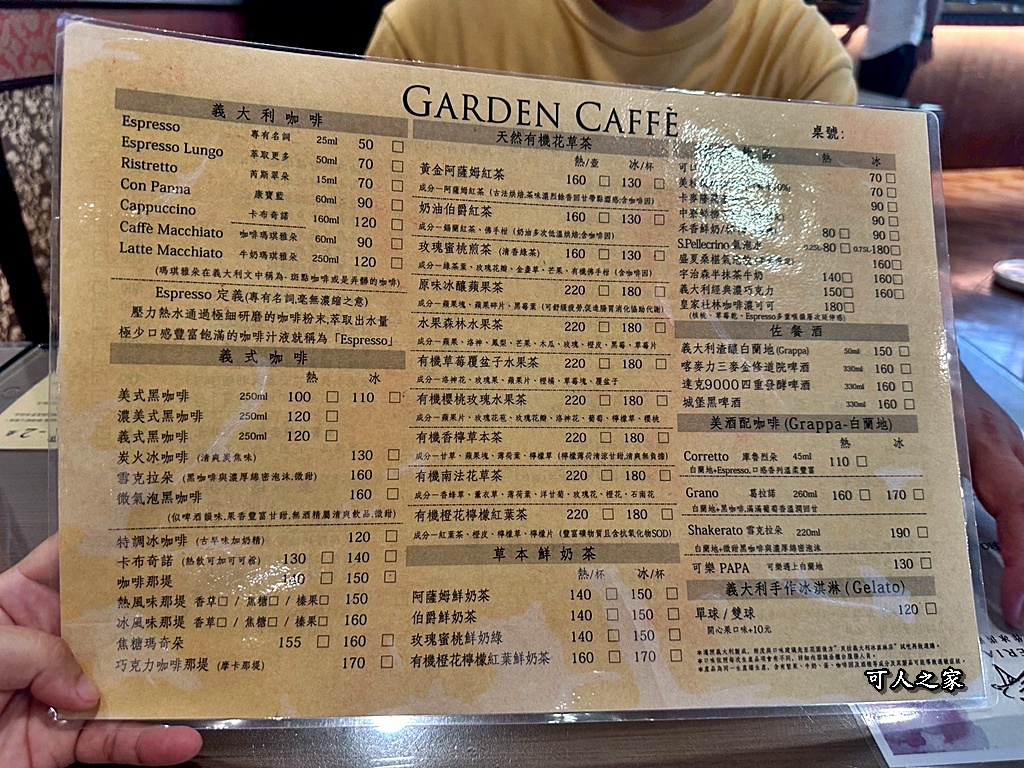 GARDEN CAFFÈ
桌號:
義大利咖啡
Espresso 專有名詞 25ml 50 □
Espresso Lungo 萃取更多 50ml 70 □
Ristretto 芮斯翠朵 15ml 70 □
Con Panna 康寶藍 60ml 90 □
Cappuccino 卡布奇諾 160ml 120 □
Caffè Macchiato 咖啡瑪琪雅朵 60ml 90 □
Latte Macchiato 牛奶瑪琪雅朵 250ml 120 □
(瑪琪雅朵在義大利文中稱為-斑點咖啡或是弄髒的咖啡)
Espresso 定義(專有名詞,毫無濃縮之意)
壓力熱水通過極細研磨的咖啡粉末,萃取出水量
極少口感豐富飽滿的咖啡汁液就稱為「Espresso」
義式咖啡
熱 冰
美式黑咖啡 250ml 100 □ 110 □
濃美式黑咖啡 250ml 120 □
義式黑咖啡 250ml 120 □
炭火冰咖啡 (清爽炭焦味) 130 □
雪克拉朵 (黑咖啡與濃厚綿密泡沫,微甜) 160 □
微氣泡黑咖啡 160 □
(似啤酒韻味,果香豐富甘甜,無酒精屬清爽飲品,微甜)
特調冰咖啡 (古早味加奶精) 120 □
卡布奇諾 (熱飲可加可可粉) 130 □ 140 □
咖啡那堤 140 □ 150 □
熱風味那堤 香草□ / 焦糖□ / 榛果□ 150
冰風味那堤 香草□ / 焦糖□ / 榛果□ 160
焦糖瑪奇朵 155 □ 160 □
巧克力咖啡那堤 (摩卡那堤) 170 □
天然有機花草茶
熱/壺 冰/杯
黃金阿薩姆紅茶 160 □ 130 □
成分－阿薩姆紅茶 (古法烘焙,茶味濃烈餘香回甘帶點澀感;含咖啡因)
奶油伯爵紅茶 160 □ 130 □
成分－錫蘭紅茶、佛手柑 (奶油多次低溫烘焙;含咖啡因)
玫瑰蜜桃煎茶 (清香綠茶) 160 □ 130 □
成分－綠茶葉、玫瑰花瓣、金盞草、芒果、有機佛手柑 (含咖啡因)
原味冰釀蘋果茶 220 □ 180 □
成分－蘋果塊、蘋果碎片、黑莓葉 (可舒緩疲勞,促進腸胃消化協助代謝)
水果森林水果茶 220 □ 180 □
成分－蘋果、洛神、鳳梨、芒果、木瓜、玫瑰、橙皮、黑莓、草莓片
有機草莓覆盆子水果茶 220 □ 180 □
成分－洛神花、玫瑰果、蘋果片、橙橘、草莓塊、覆盆子
有機櫻桃玫瑰水果茶 220 □ 180 □
成分－蘋果片、玫瑰花苞、玫瑰花瓣、洛神花、葡萄、檸檬草、櫻桃
有機香檸草本茶 220 □ 180 □
成分－甘草、蘋果塊、薄荷葉、檸檬草 (檸檬薄荷清涼甘甜,清爽無負擔)
有機南法花草茶 220 □ 180 □
成分－香蜂草、薰衣草、薄荷葉、洋甘菊、玫瑰花、橙花、石南花
有機橙花檸檬紅葉茶 220 □ 180 □
成分－紅葉茶、橙皮、檸檬草、檸檬片 (豐富礦物質且含抗氧化物SOD)
草本鮮奶茶
熱/杯 冰/杯
阿薩姆鮮奶茶 140 □ 150 □
伯爵鮮奶茶 140 □ 150 □
玫瑰蜜桃鮮奶綠 140 □ 150 □
有機橙花檸檬紅葉鮮奶茶 160 □ 170 □
熱 冰
70 □
70 □
90 □
90 □
禾香鮮奶 80 □ 90 □
S.Pellecrino 氣泡水 0.25L 80 □ 0.75L 180 □
盛夏桑椹氣泡飲 160 □
宇治森半抹茶牛奶 140 □ 160 □
義大利經典濃巧克力 150 □ 160 □
皇家杜林咖啡濃可可 180 □
(核桃、草莓乾、Espresso多重喉韻層次延伸感)
佐餐酒
義大利渣釀白蘭地(Grappa) 50ml 150 □
喀麥力三麥金修道院啤酒 330ml 160 □
達克9000四重發酵啤酒 330ml 160 □
城堡黑啤酒 330ml 160 □
美酒配咖啡(Grappa-白蘭地)
熱 冰
Corretto 庫魯烈朵 45ml 110 □
白蘭地+Espresso, 口感香烈溫柔豐富
Grano 葛拉諾 260ml 160 □ 170 □
白蘭地+黑咖啡,滿滿葡萄香溫潤回甘
Shakerato 雪克拉朵 220ml 190 □
白蘭地+微甜黑咖啡與濃厚綿密泡沫
可樂 PAPA 可樂遇上白蘭地 130 □
義大利手作冰淇淋(Gelato)
單球 / 雙球 120 □
開心果口味+10元
可人之家